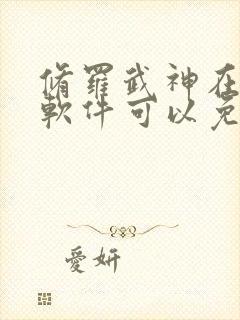 脩羅武神在
軟件可以免
愛妍